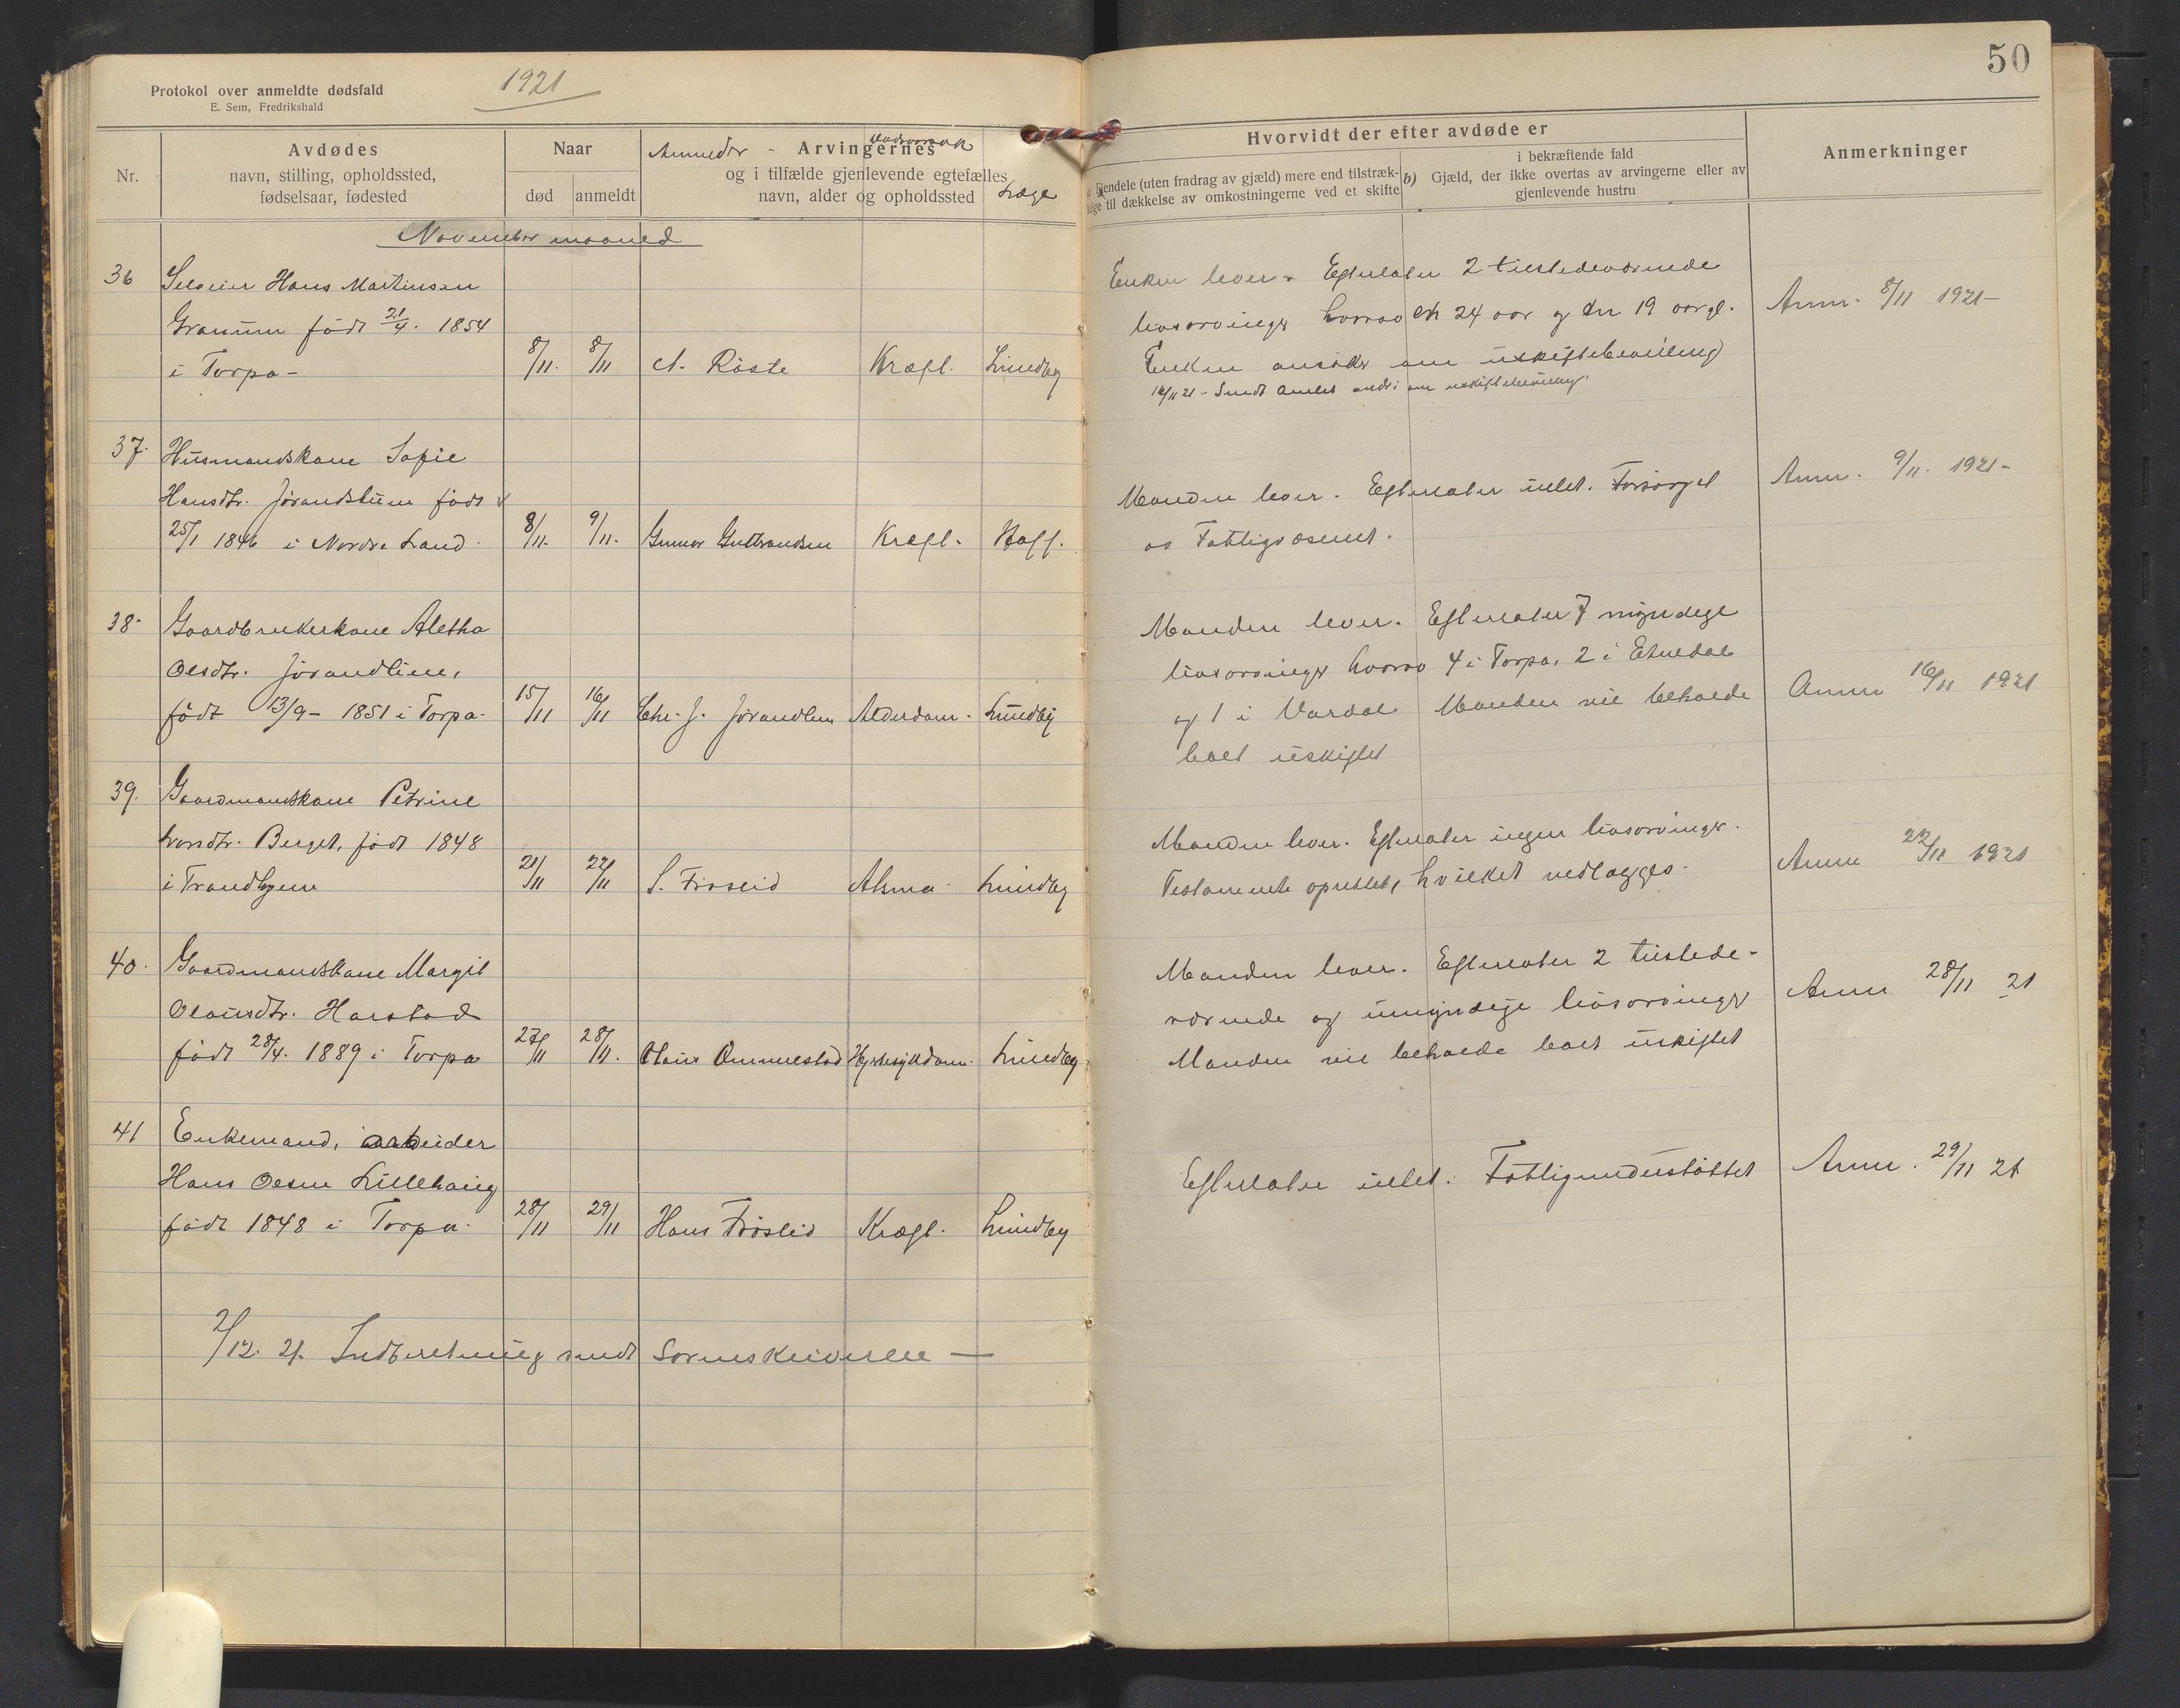 50
Protokol over anmeldte dødsfald
E. Sem, Fredrikshald
1921
Nr.
Avdødes
navn, stilling, opholdssted,
fødselsaar, fødested
Naar
død
anmeldt
Anmelder - Arvingernes Dødsaarsak
og i tilfælde gjenlevende egtefælles
navn, alder og opholdssted Læge
Hvorvidt der efter avdøde er
Eiendele (uten fradrag av gjæld) mere end tilstræk-
kelige til dækkelse av omkostningerne ved et skifte
b)
i bekræftende fald
Gjæld, der ikke overtas av arvingerne eller av
gjenlevende hustru
Anmerkninger
November maaned
36 Selveier Hans Martinsen
Granum født 21/4. 1854
i Torpa - 8/11. 8/11 A. Røste Kræft. Lundby
Enken lever. Efterlater 2 tilstedeværende
livsarvinger hvorav en 24 aar og en 19 aar gl.
Enken ansøker om uskiftebevilling
16/11 21 - Sendt Amtet andr. om uskiftebevilling.
Anm. 8/11 1921 -
37. Husmandskone Sofie
Hansdtr. Jørandstuen født
25/1 1846 i Nordre Land. 8/11. 9/11. Gunnar Gulbrandsen Kræft. Hoff.
Manden lever. Efterlater intet. Forsørget
av Fattigvæsenet.
Anm. 9/11. 1921 -
38. Gaardbrukerkone Aletha
Olsdtr. Jørandlien,
født 13/9 - 1851 i Torpa. 15/11 16/11 Chr. J. Jørandlien Alderdom. Lundby
Manden lever. Efterlater 7 myndige
livsarvinger hvorav 4 i Torpa, 2 i Etnedal
og 1 i Vardal. Manden vil beholde
boet uskiftet
Anm 16/11 1921
39. Gaardmandskone Petrine
Larsdtr. Berget, født 1848
i Trandbygden 21/11 22/11 S. Frøslid Astma. Lundby
Manden lever. Efterlater ingen livsarvinger.
Testamente oprettet, hvilket vedlægges.
Anm 22/11 1921
40. Gaardmandskone Margit
Olausdtr. Harstad
født 28/4. 1889 i Torpa 27/11 28/11. Olaus Ommelstad Hjertesykdom. Lundby
Manden lever. Efterlater 2 tilstede-
værende og umyndige livsarvinger
Manden vil beholde boet uskiftet
Anm 28/11 21
41 Enkemand, arbeider
Hans Olsen Lillehaug
født 1848 i Torpa. 28/11 29/11 Hans Frøslid Kræft. Lundby
Efterlater intet. Fattigunderstøttet
Anm. 29/11 21
2/12. 21. Indberetning sendt Sorenskriveren —